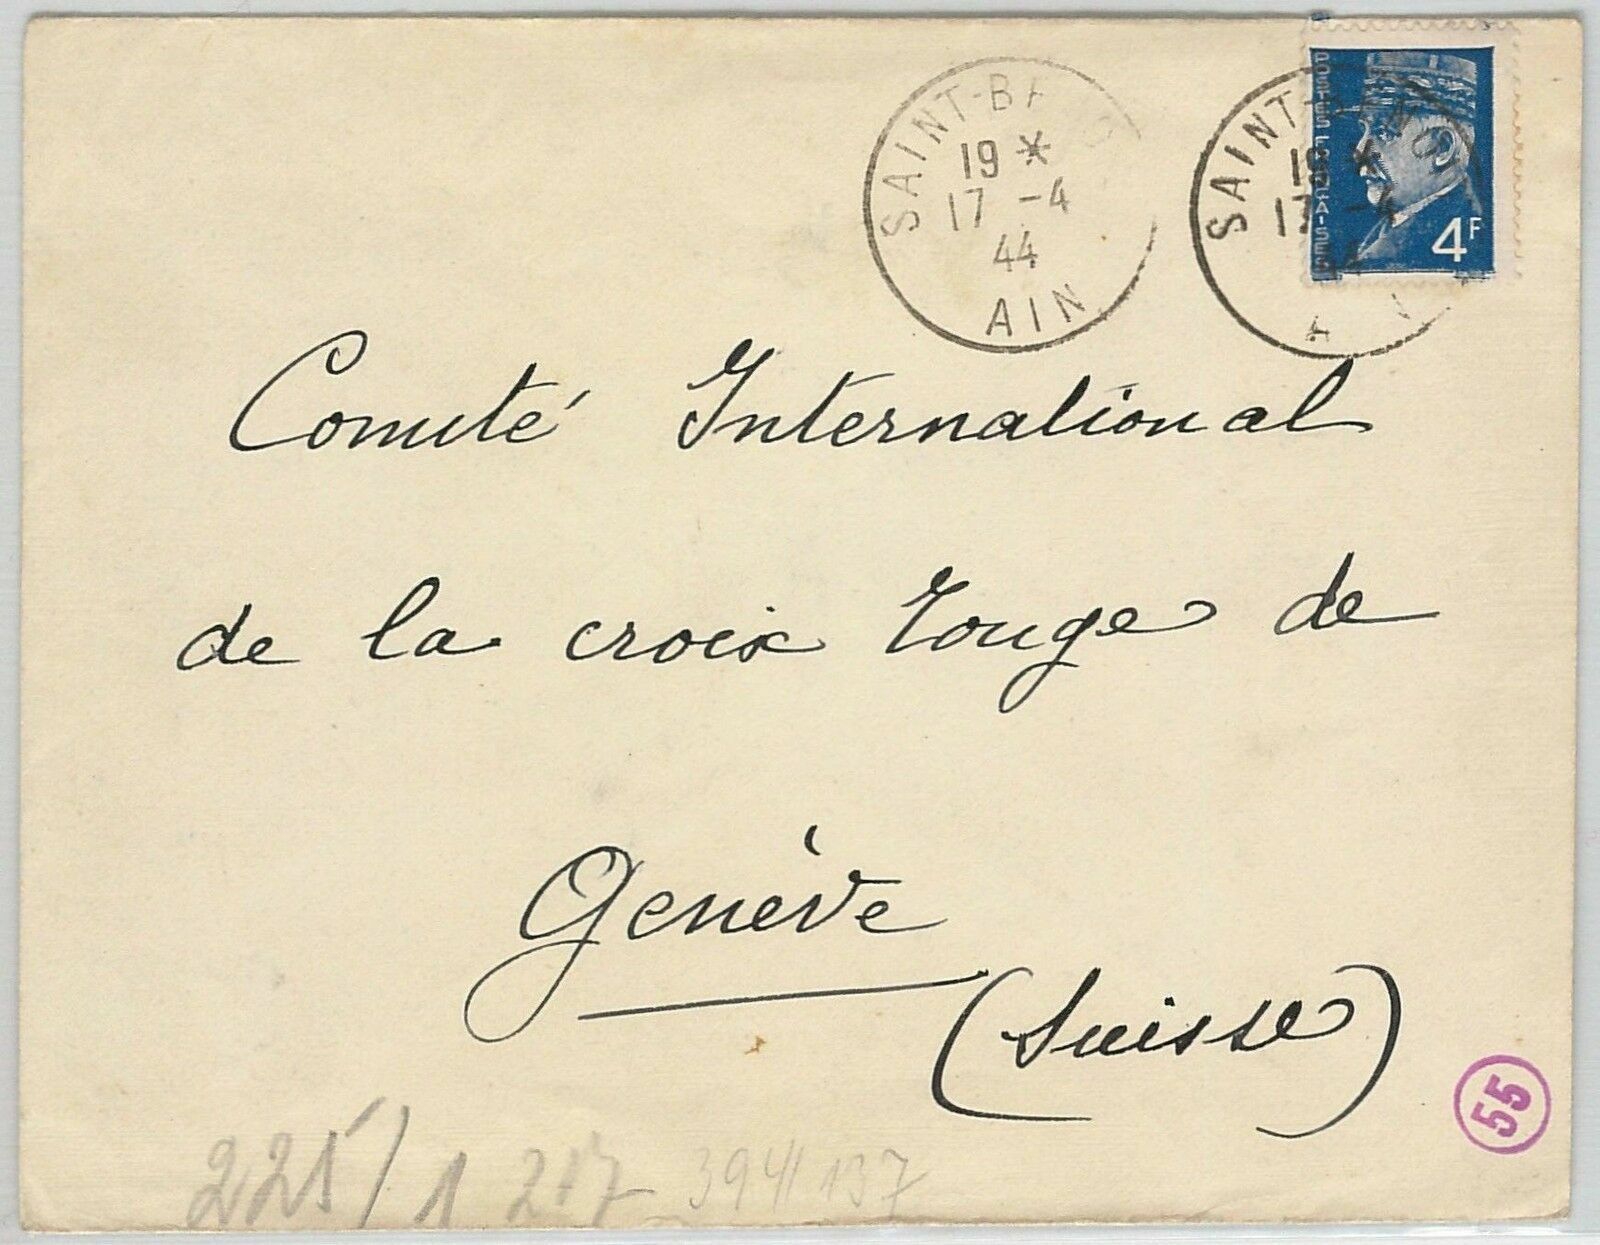 SAINT-B
19 *
17 -4
44
AIN
SAINT-
19 *
17 -4
44
A N
POSTES FRANÇAISES
4F
Comité International
de la croix rouge de
Genève
(Suisse)
55
225/1 217 3941/137